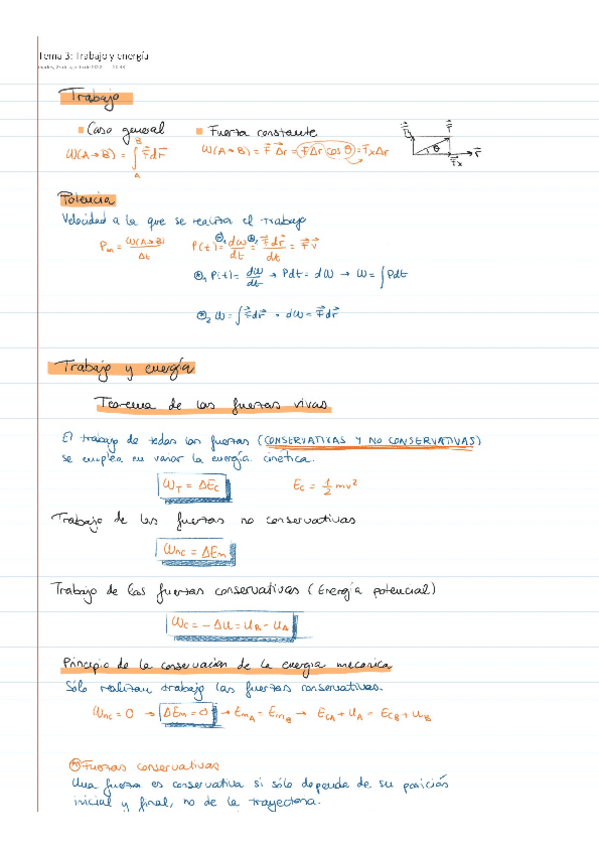 Tema 3: Trabajo y energía
Trabajo
▪ Caso general ▪ Fuerza constante
W(A→B) = ∫_A^B F⃗ dr⃗ W(A→B) = F⃗ Δr⃗ = FΔr cos θ = FₓΔr
F⃗ θ F⃗ₓ r⃗
Potencia
Velocidad a la que se realiza el trabajo
Pm = W(A→B)/Δt P(t) =①dW/dt②= F⃗ dr⃗/dt = F⃗ v⃗
①, P(t) = dW/dt → Pdt = dW → W = ∫Pdt
②, W = ∫F⃗dr⃗ → dW = F⃗dr⃗
Trabajo y energía
Teorema de las fuerzas vivas
El trabajo de todas las fuerzas (CONSERVATIVAS Y NO CONSERVATIVAS)
se emplea en variar la energía cinética.
W_T = ΔE_C E_C = 1/2 mv²
Trabajo de las fuerzas no conservativas
W_NC = ΔEm
Trabajo de las fuerzas conservativas (Energía potencial)
W_C = -ΔU = U_B - U_A
Principio de la conservación de la energía mecánica
Sólo realizan trabajo las fuerzas conservativas.
W_NC = 0 → ΔEm = 0 → Em_A = Em_B → E_CA + U_A = E_CB + U_B
Fuerzas conservativas
Una fuerza es conservativa si sólo depende de su posición
inicial y final, no de la trayectoria.